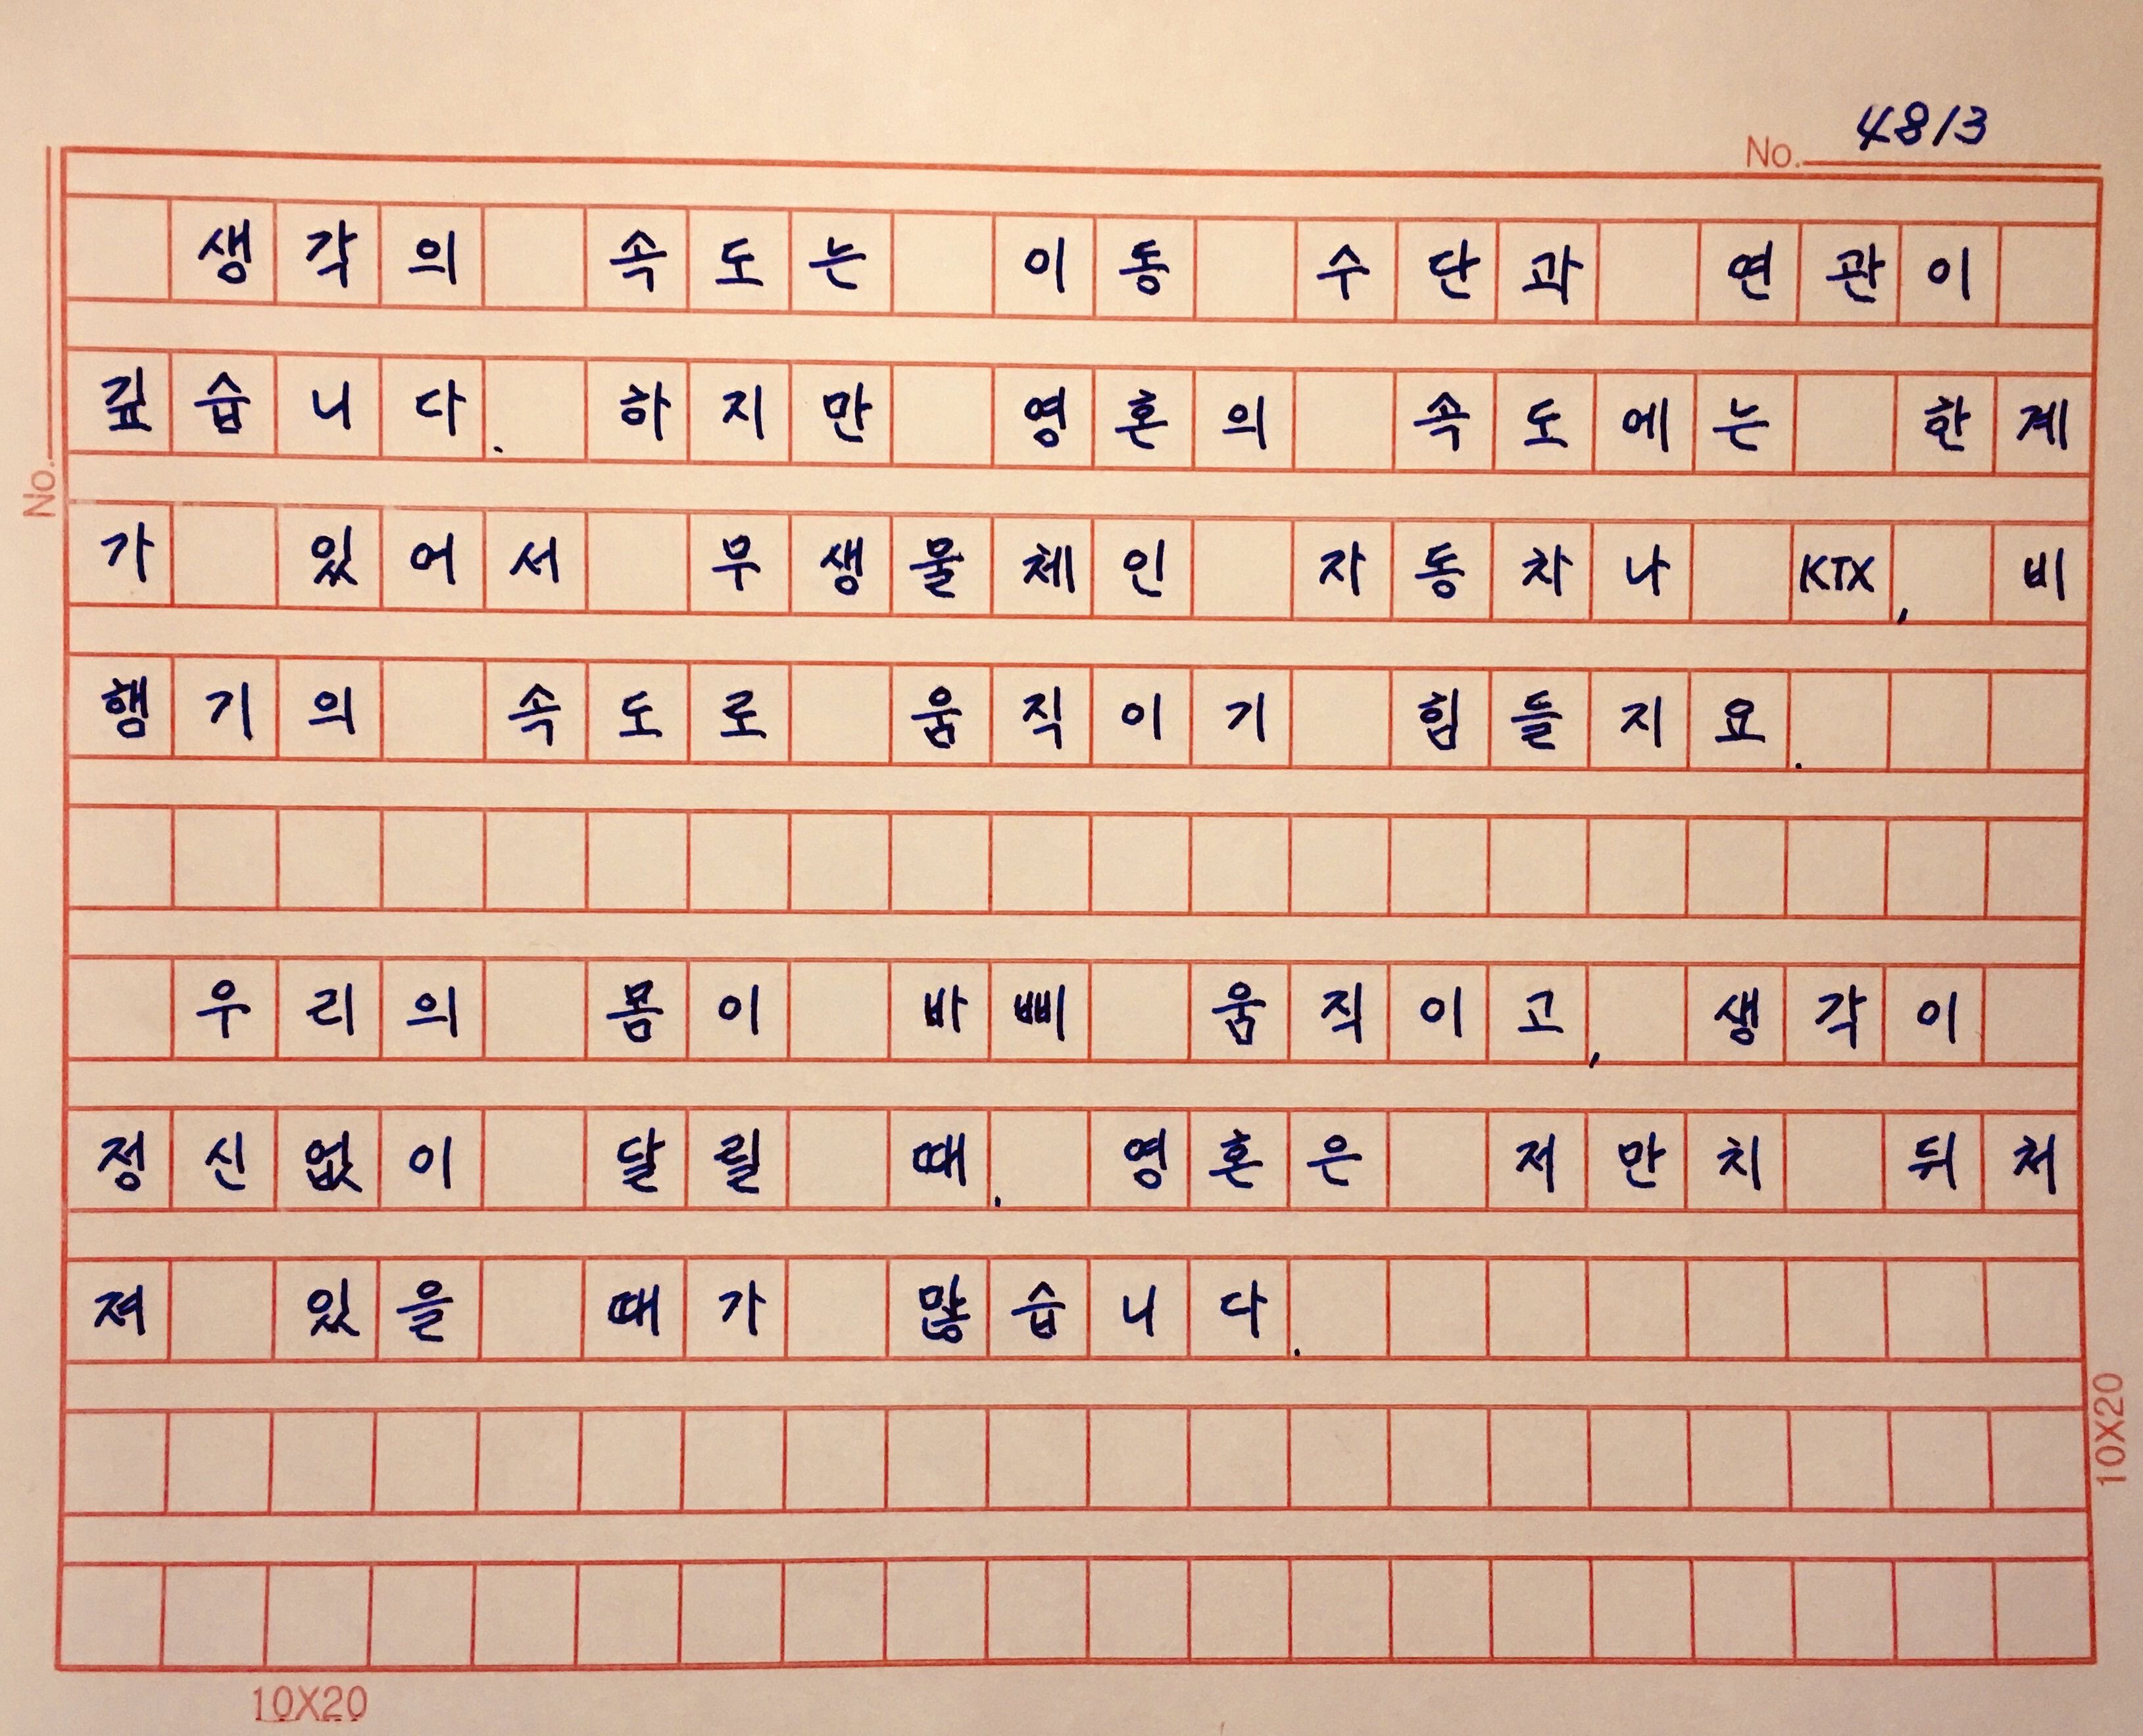 No. 4813
생각의 속도는 이동 수단과 연관이
깊습니다. 하지만 영혼의 속도에는 한계
가 있어서 무생물체인 자동차나 KTX, 비
행기의 속도로 움직이기 힘들지요.
우리의 몸이 바삐 움직이고, 생각이
정신없이 달릴 때. 영혼은 저만치 뒤처
져 있을 때가 많습니다.
No.
10X20
10X20